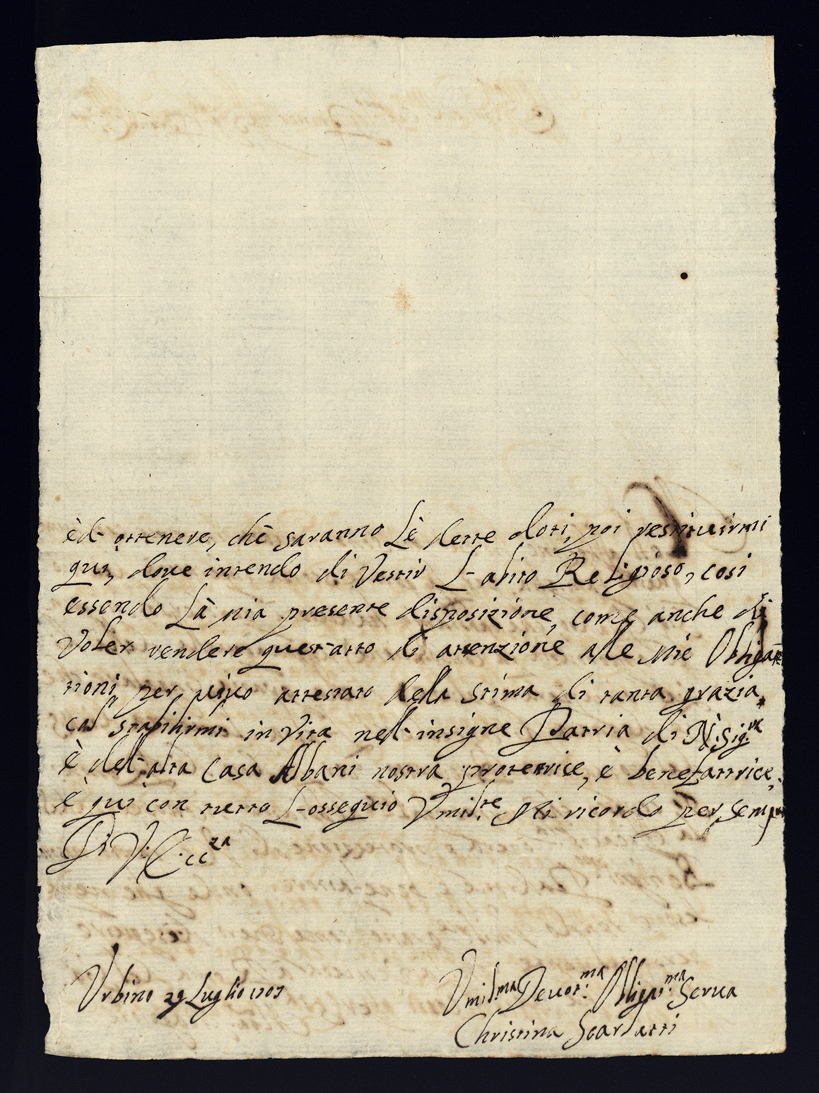 èd ottenere, che saranno Lè dette doti, poi restituirmi
qui, doue intendo di Vestir L'abito Religioso, così
essendo Là mia presente disposizione, come anche di
Voler rendere quest'atto di attenzione alle Mie Obbligat
tioni per uiuo attestato della Stima di tanta grazia,
col stabilirmi in Vita nell'insigne Patria di N. Sig.re
è dell'alta Casa Albani nostra protettrice, è benefattrice,
è qui con tutto L'ossequio Vmil.te Mi ricordo per semp
Di V: Ecc.za
Vrbino 29 Luglio 1707
Vmil.ma Deuot.ma Obligat.ma Serua
Christina Scarlatti